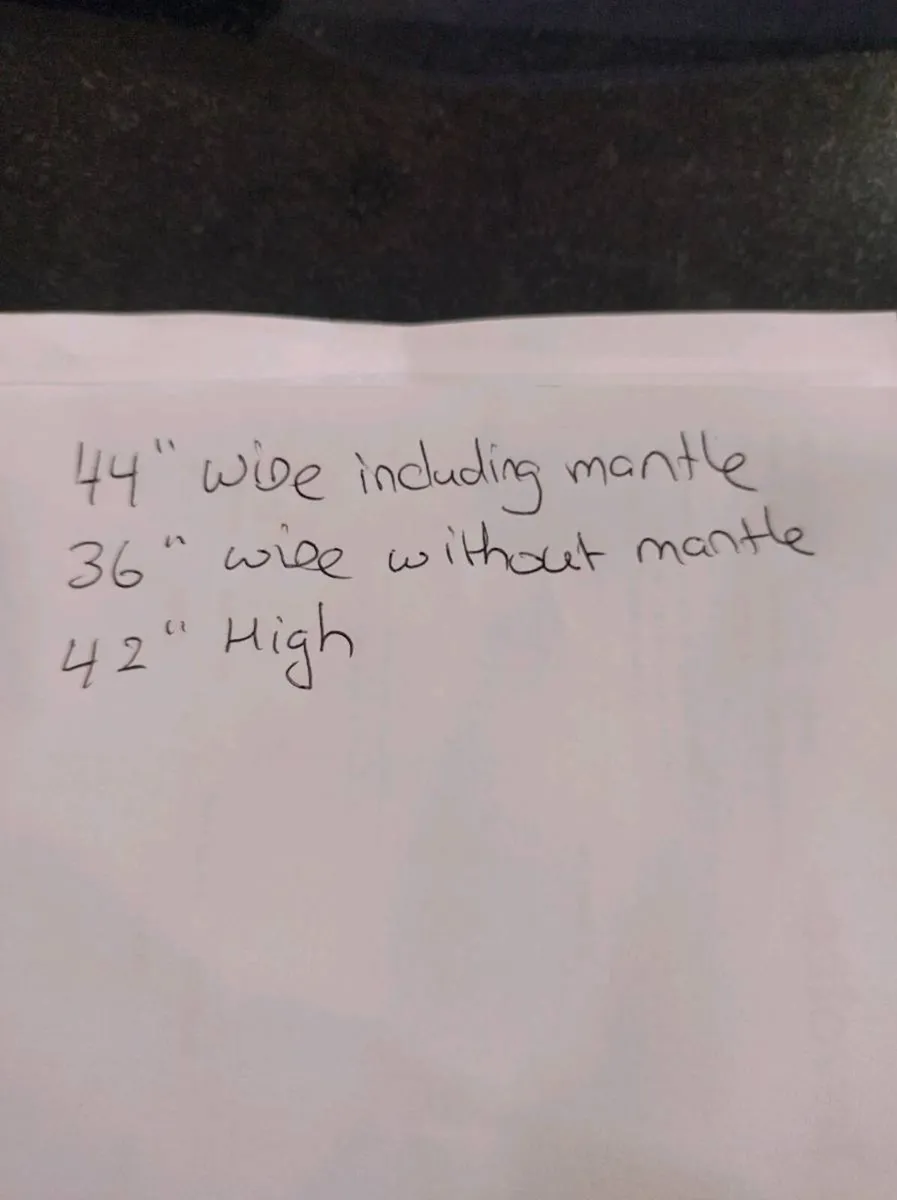 44" wide including mantle
36" wide without mantle
42" High